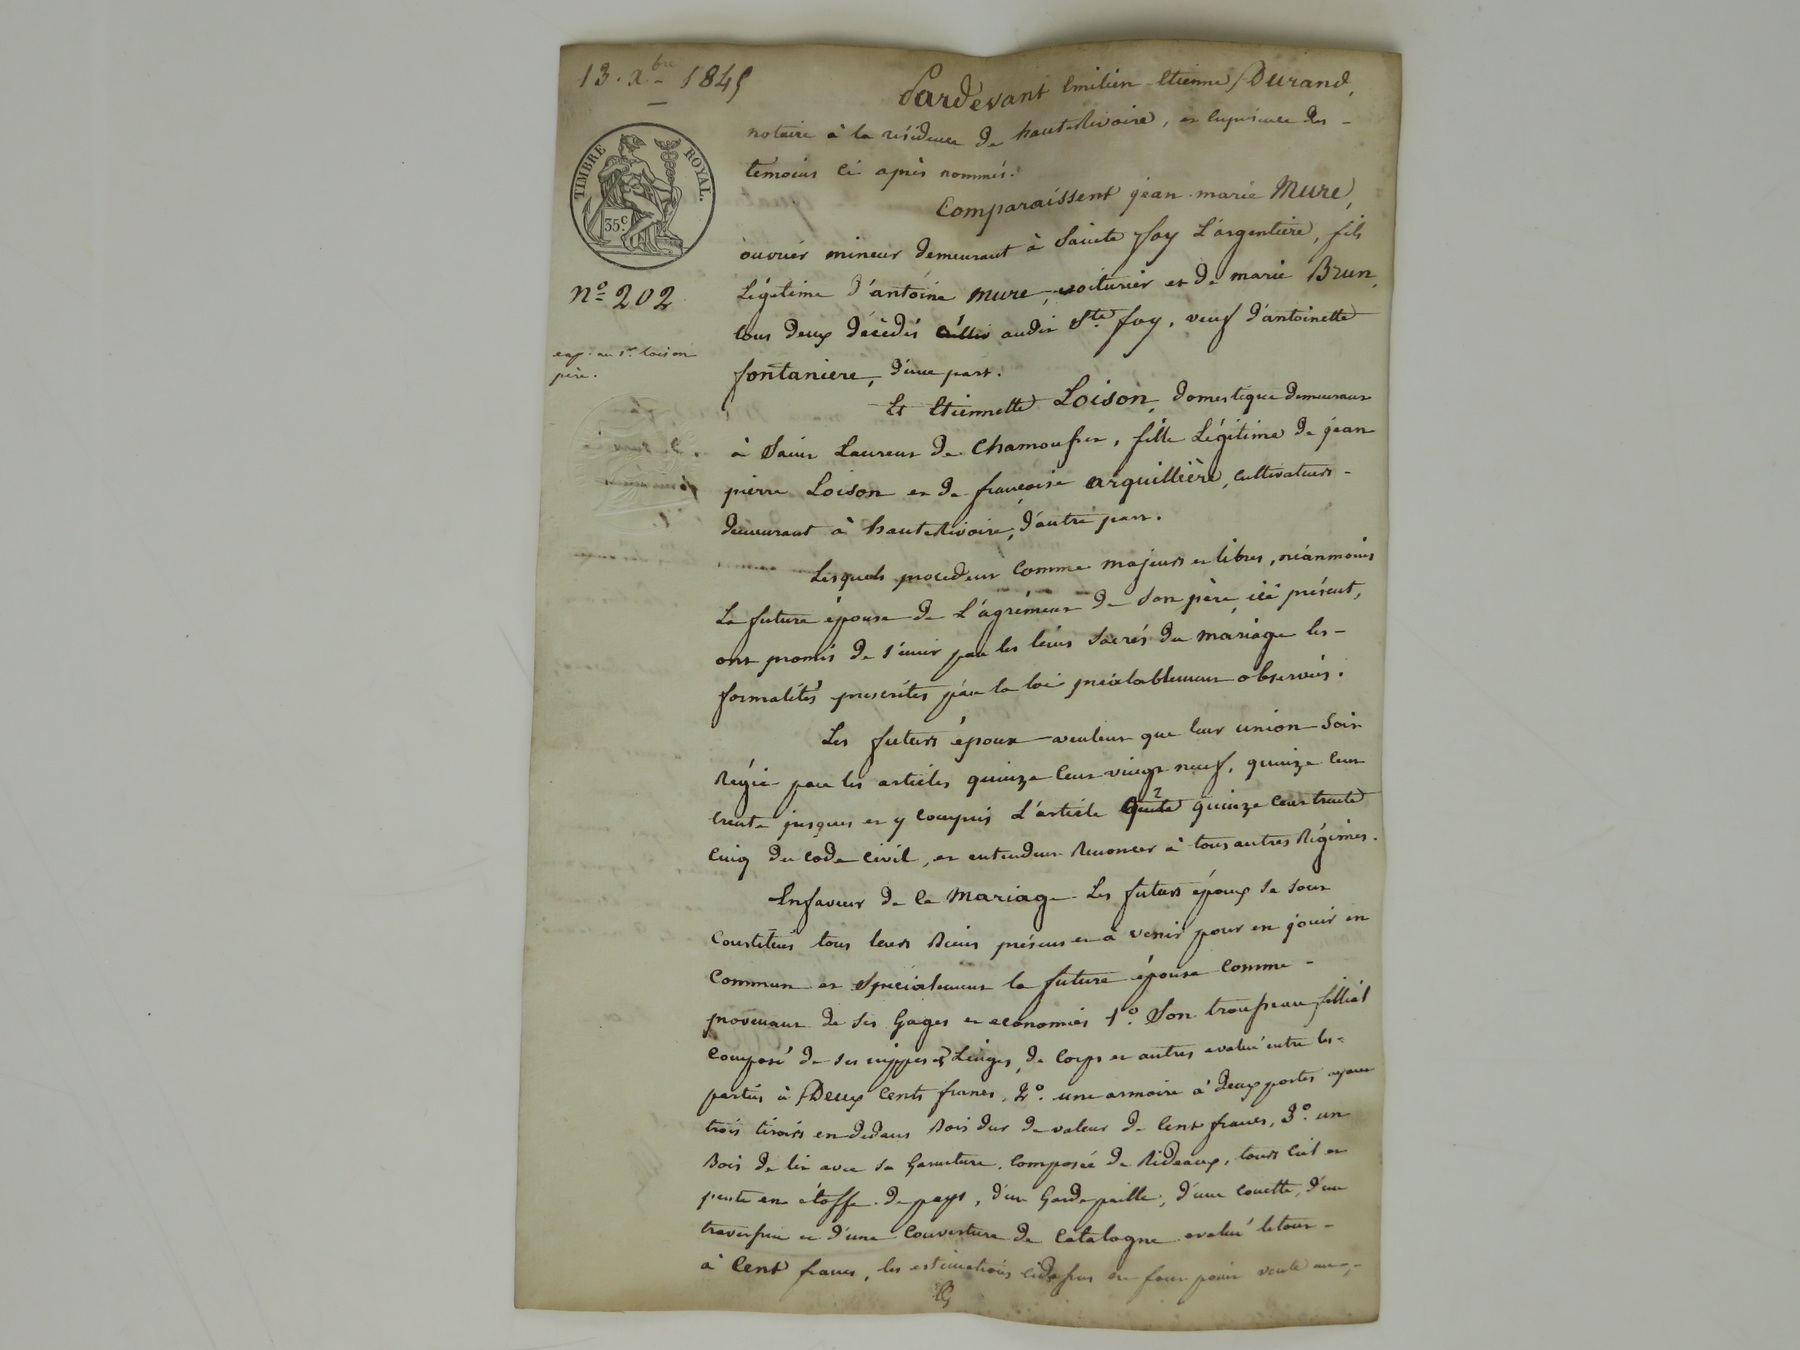 13. Xbre 1845
Pardevant Emilien Etienne Durand,
notaire à la résidence de hauterivoire, en la présence des -
témoins ci après nommés.
TIMBRE ROYAL.
35c.
Comparaissent jean marie Mure,
ouvrier mineur demeurant à Sainte foy L'argentière, fils
Légitime d'antoine Mure, voiturier et de marie Brun,
tous deux décédés audit Ste. foy, veuf d'antoinette
fontaniere, d'une part.
Nº 202
exp. au Sr. Loison
père.
Et Etiennette Loison, domestique demeurant
à Saint Laurent de Chamousset, fille Légitime de jean
pierre Loison et de françoise arquillière, cultivateurs -
demeurant à hauterivoire, d'autre part.
Lesquels procédant comme majeurs et libres, néanmoins
La future épouse de L'agrément de son père, ici présent,
ont promis de s'unir par les liens sacrés du mariage les -
formalités prescrites par la loi préalablement observées.
Les futurs époux veulent que leur union soit
Régie par les articles quinze cent vingt neuf, quinze cent
trente jusques et y compris L'article quinze cent trente
cinq du code civil, et entendent Renoncer à tous autres Régimes.
En faveur de ce mariage Les futurs époux se sont
Constitués tous leurs Biens présens et à venir pour en jouir en
Commun et spécialement la future épouse comme -
provenant de ses Gages et économies 1º. Son trousseau filliat
composé de ses nippes & Linges, de corps et autres évalué entre les -
parties à Deux Cents francs, 2º. une armoire à deux portes ayant
trois tiroirs en dedans Bois dur de valeur de Cent francs, 3º. un
Bois de lit avec sa Garniture, Composée de Rideaux, tours ciel et
pente en étoffe de pays, d'un Garde paille, d'une couette, d'un
traversin et d'une couverture de Catalogne évalué le tout -
à Cent francs, les estimations ci dessus ne font point vente